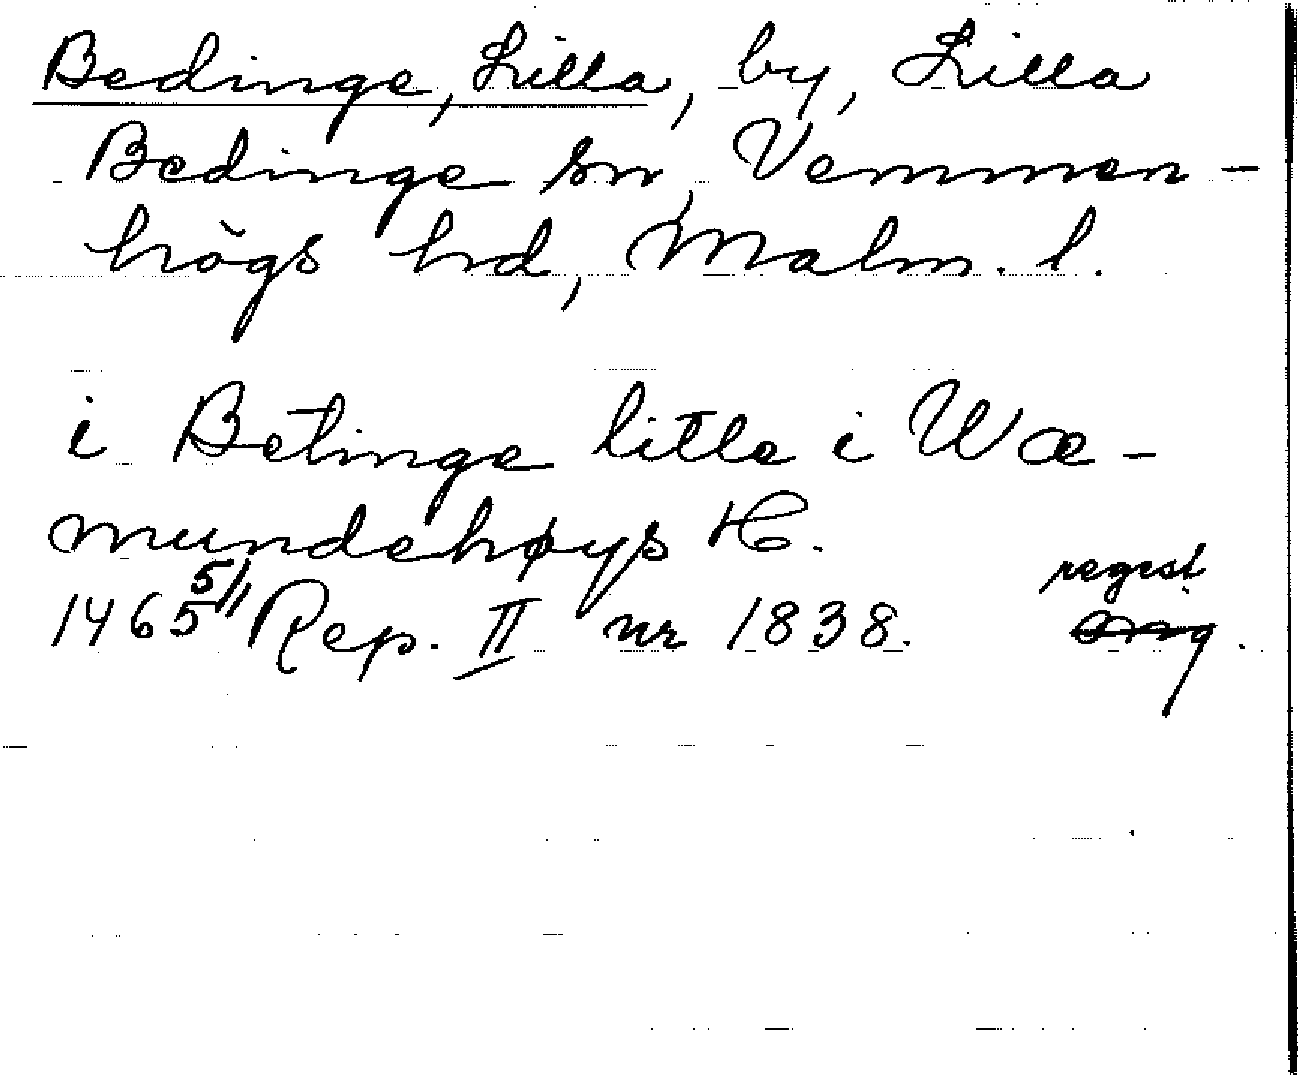 Bedinge, Lilla, by, Lilla
Bedinge sn, Vemmen-
högs hd, Malm. l.
i Betinge litle i Wæ-
mundehøys H.
1465 5/11 Rep. II nr 1838. regest